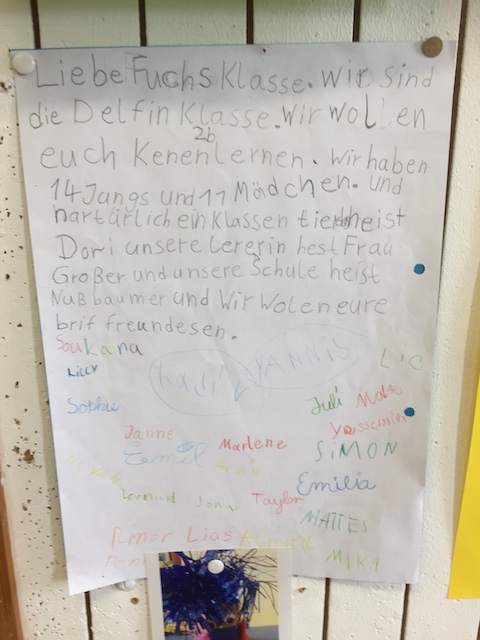 Liebe Fuchs Klasse. Wir sind
die Delfin Klasse. Wir wollen
2b
euch Kenenlernen. Wir haben
14 Jungs und 11 Mädchen. und
nartürlich ein Klassen tier heist
Dori unsere Lererin hest Frau
Großer und unsere Schule heist
Nußbaumer und Wir wolen eure
brif freundesen.
Soukana
Lilly YANNIS
Sophie Juli
Yassemin
Janne Marlene SiMON
Emil
Emilia
Leonard Jonas Taylor
MATTES
Lias
MiKA